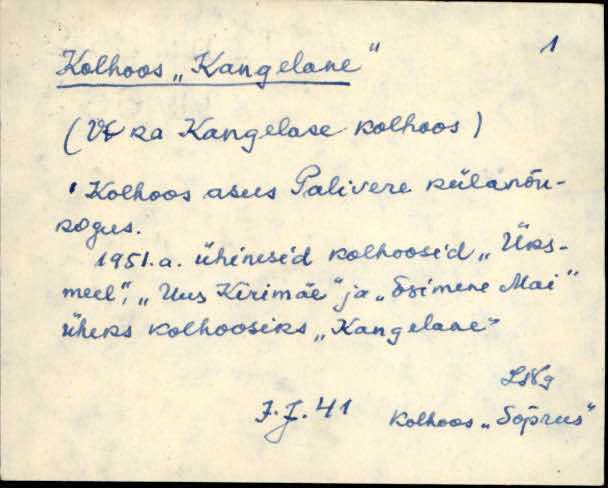 1
Kolhoos „Kangelane"
(Vt ka Kangelase kolhoos)
Kolhoos asus Palivere külanõu-
kogus.
1951.a. ühinesid kolhoosid „Üks-
meel", „Uus Kirimäe" ja „Esimene Mai"
üheks kolhoosiks „Kangelane"
J.J.41
kolhoos „Sõprus"